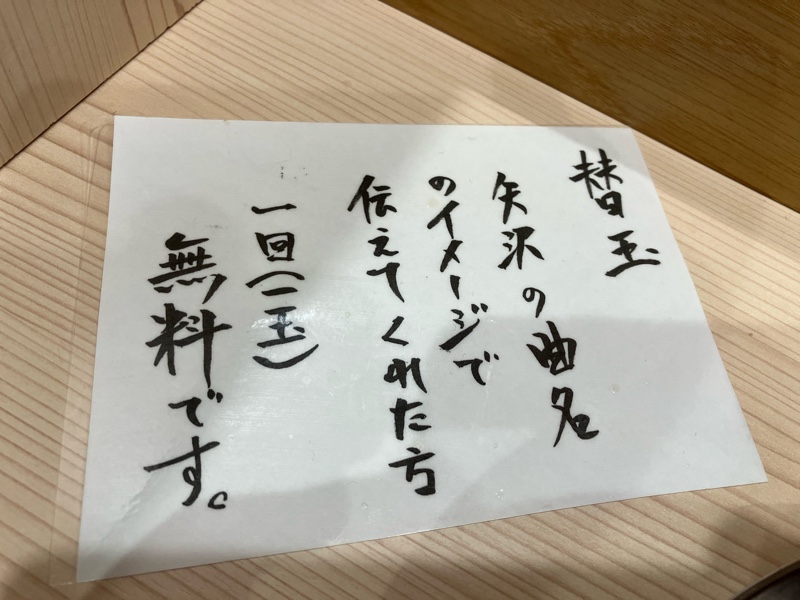 替玉
矢沢の曲名
のイメージで
伝えてくれた方
一回(一玉)
無料です。